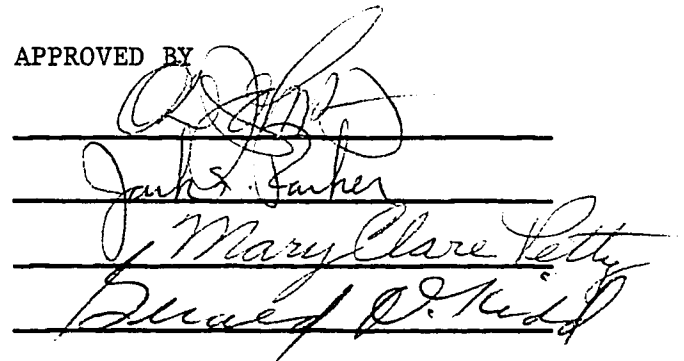 APPROVED BY
Jack F. Parker
Mary Clare Petty
Gerald D. Kidd